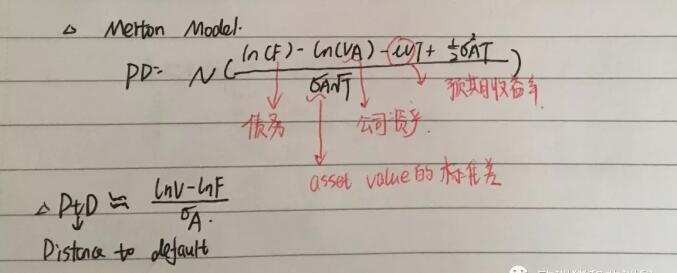 △ Merton Model.
PD = N( (ln(F) - ln(VA) - μT + ½σ²AT) / (σA√T) )
债务
公司资产
预期收益率
asset value的标准差
△ DtD ≒ (lnV - lnF) / σA.
Distance to default